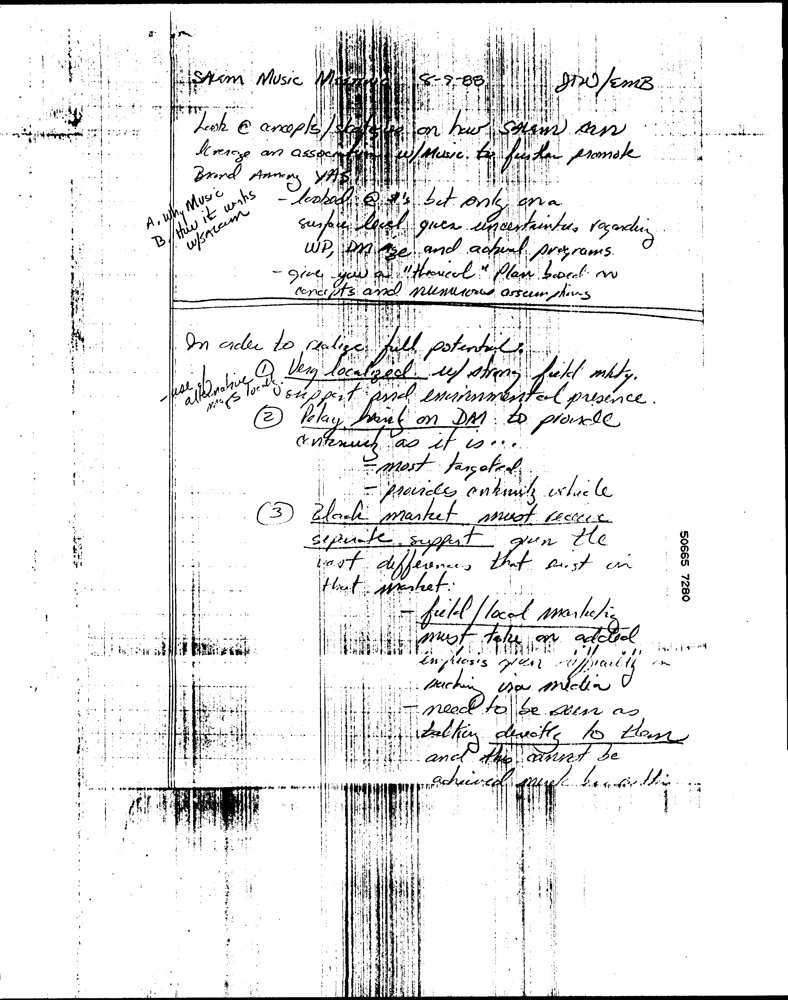 Salem Music Meeting 8-9-88 JTW/EMB
Look @ concepts/strategies on how Salem can
leverage an association w/Music to further promote
Brand Among YAS
A. Why Music
B. How it works
w/Salem
- looked @ #'s but only on a
surface level given uncertainties regarding
WP, DM age and actual programs.
- give you a "theoretical" Plan based on
concepts and numerous assumptions
In order to realize full potential:
① Very localized w/ strong field mktg.
support and environmental presence.
- use of
alternative
mags locally
② Relay heavily on DM to provide
continuity as it is...
- most targeted
- provides continuity vehicle
③ Black market must receive
separate support given the
vast differences that exist in
that market:
- field/local marketing
must take on added
emphasis given difficulty in
reaching via media
- need to be seen as
talking directly to them
and this cannot be
achieved
50665 7280